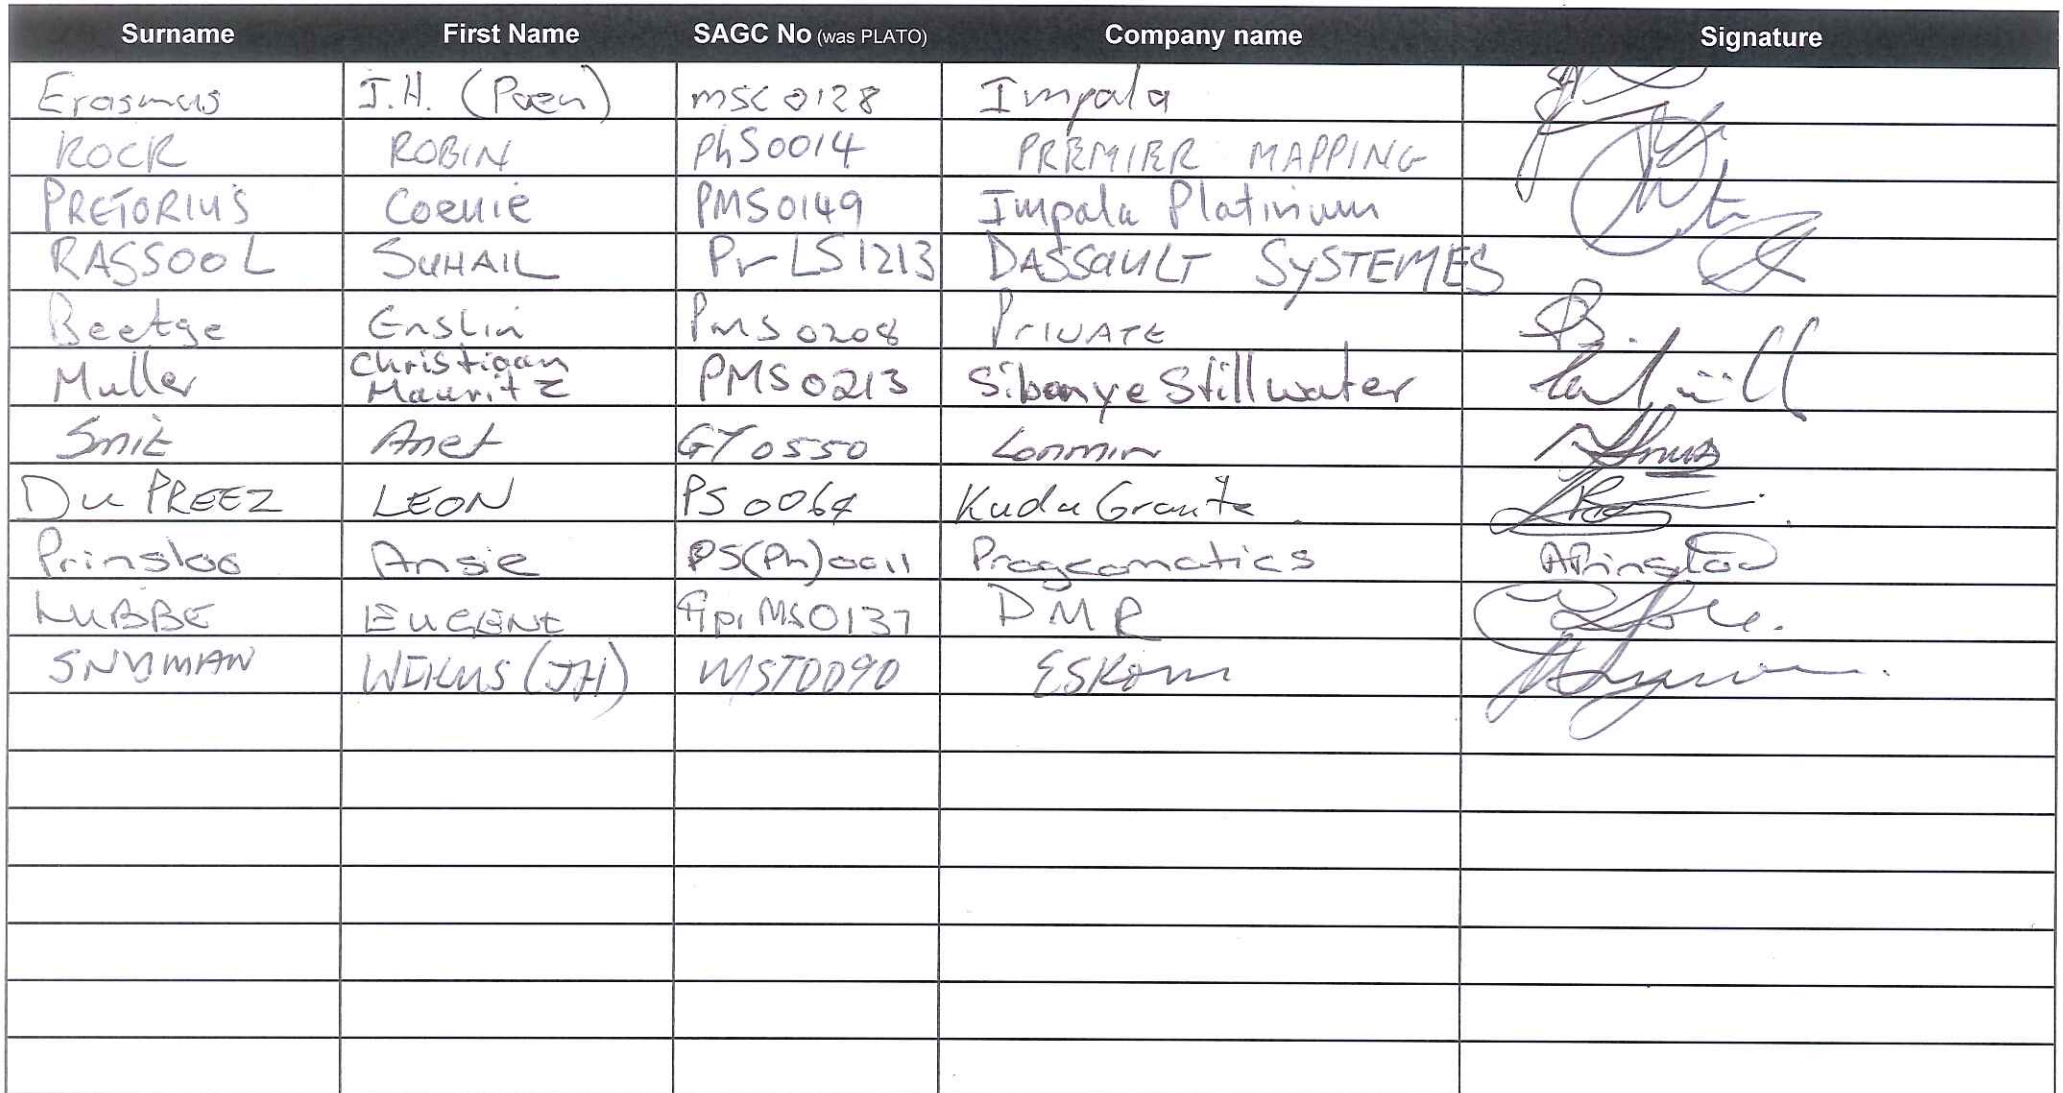 Surname First Name SAGC No (was PLATO) Company name Signature
Erasmus J.H. (Poen) msc 0128 Impala
ROCK ROBIN phS0014 PREMIER MAPPING
PRETORIUS Coenie PMS0149 Impala Platinium
RASSOOL SUHAIL Pr LS1213 DASSAULT SYSTEMES
Beetge Enslin PMS 0208 PRIVATE
Muller Christiaan Mauritz PMS0213 Sibanye Stillwater
Smit Anet GT0550 Lonmin
Du PREEZ LEON PS 0064 Kuda Granite
Prinsloo Ansie PS(Ph)0011 Progeomatics APrinsloo
LUBBE EUGENE MS0137 DMR
SNYMAN WIKUS (JH) MST0090 ESKom